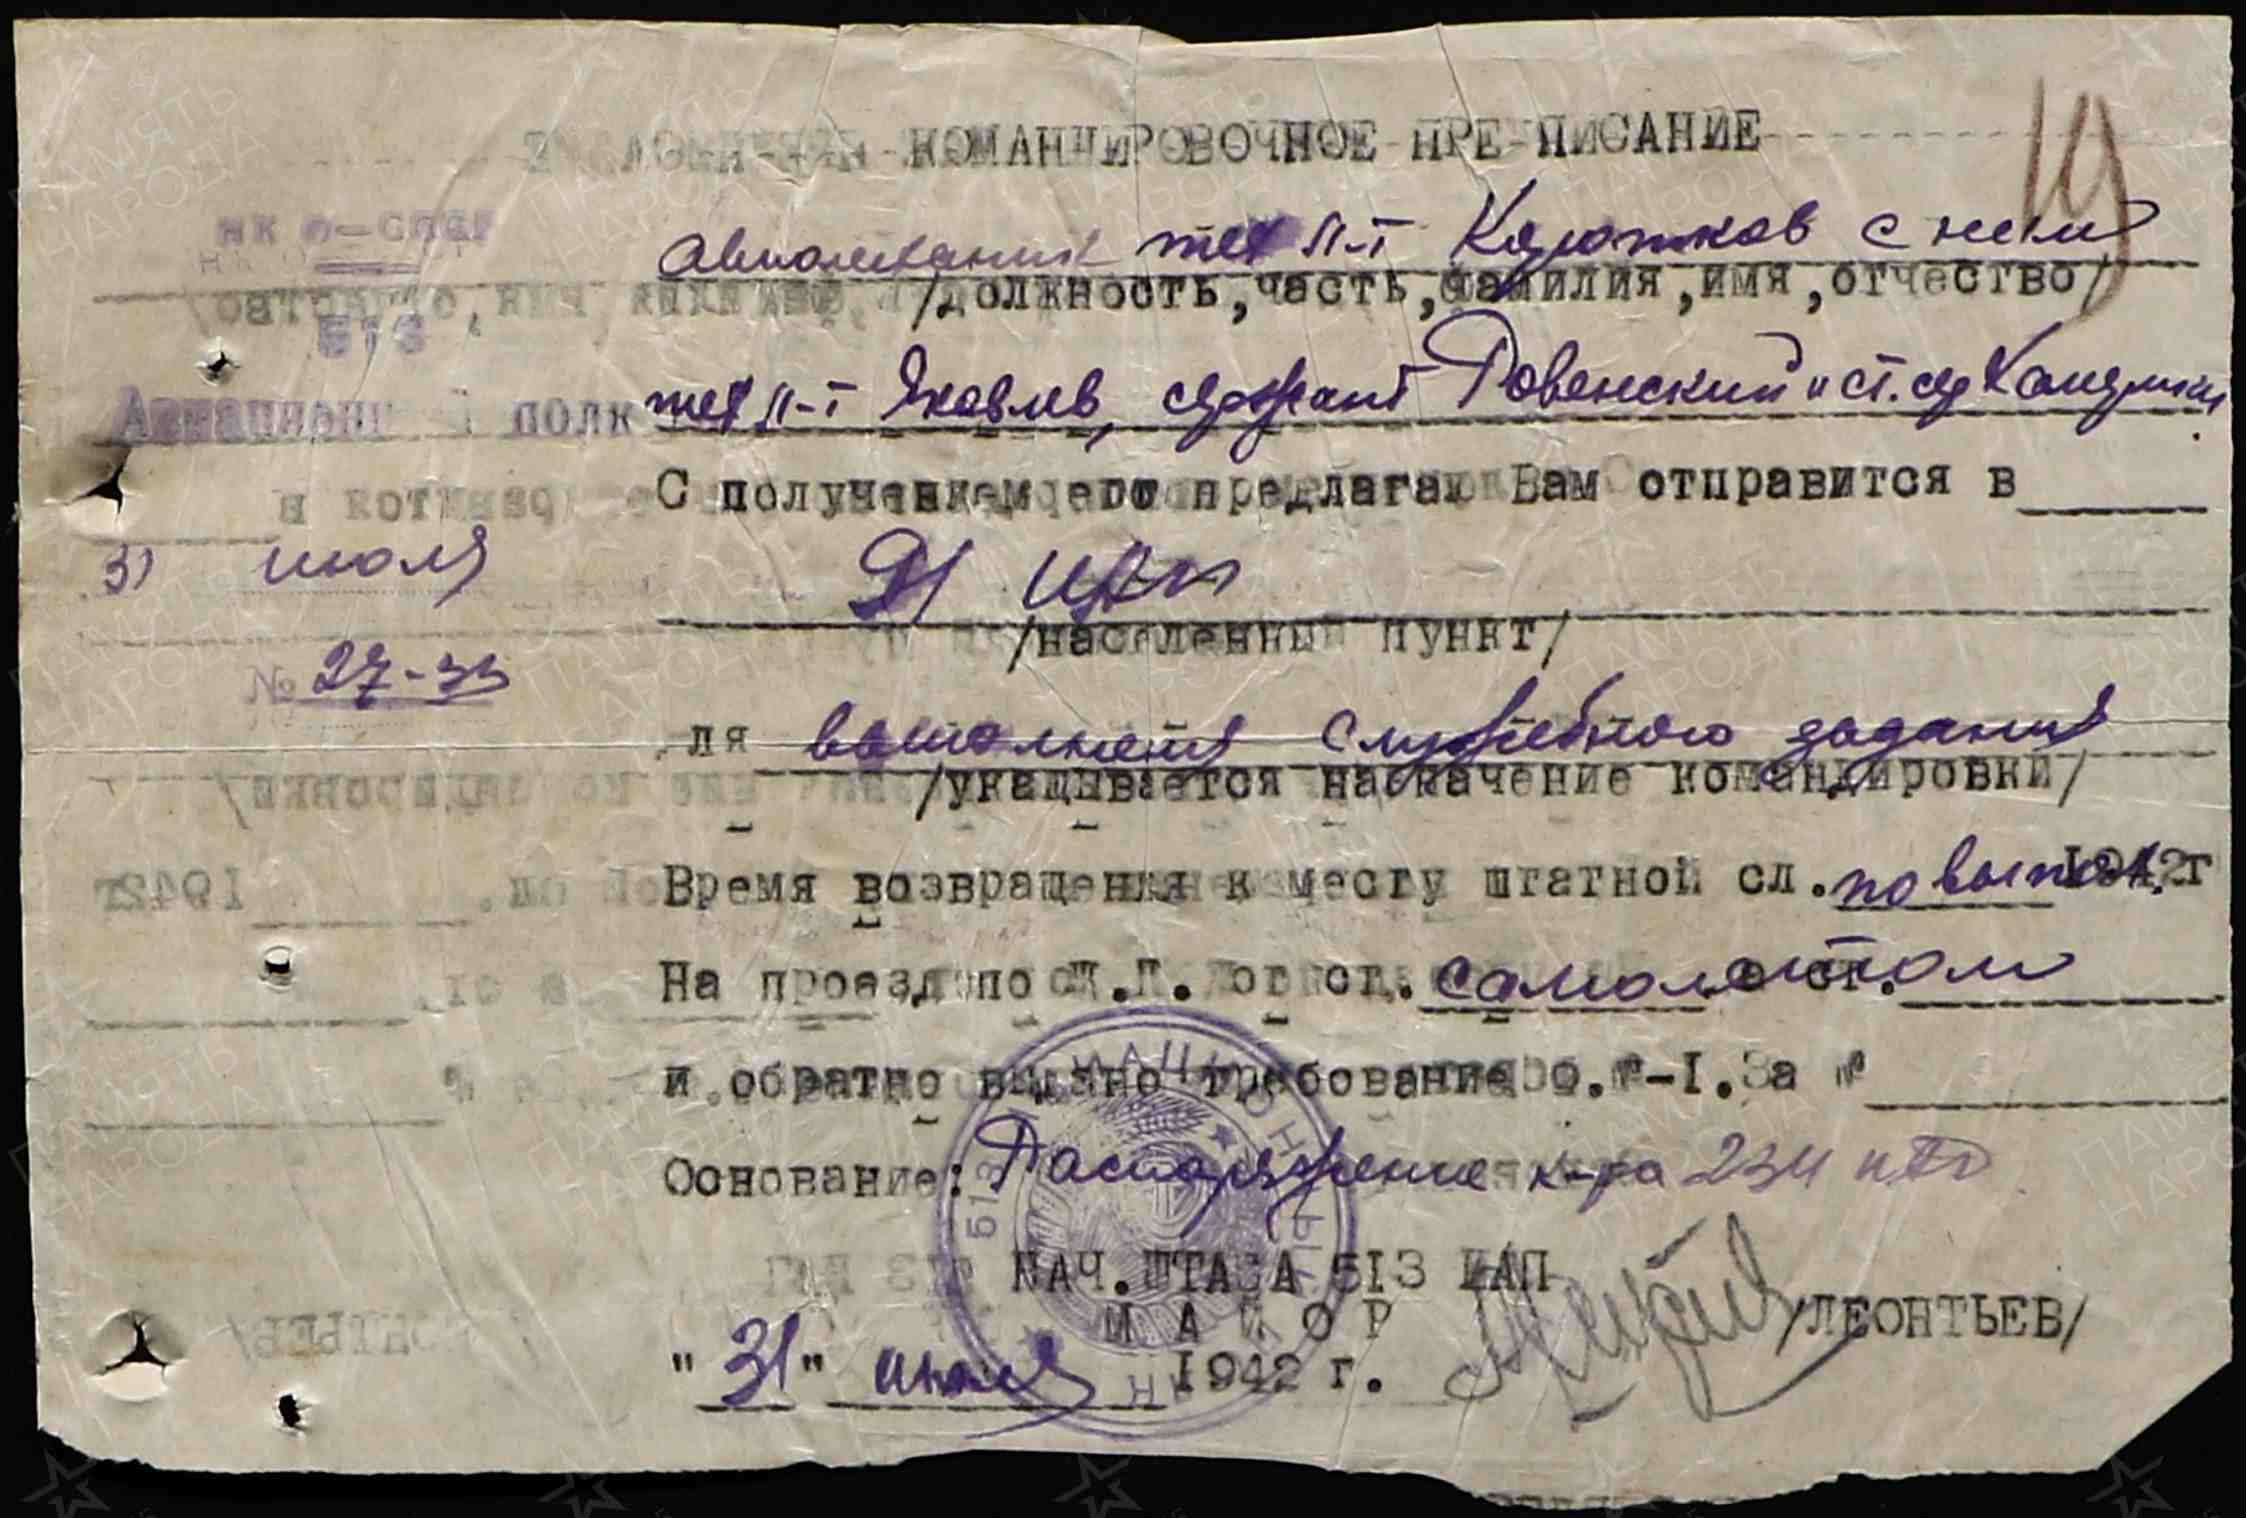 КОМАНДИРОВОЧНОЕ ПРЕ ПИСАНИЕ
19
НК О-СССР
513
Авиационный полк
31 июля
№ 27-31
авиамеханик тех п-т Коротков с ним
/должность, часть, фамилия, имя, отчество/
тех п-т Яковлев, сержант Ровенский и ст. сер
С получением сего предлагаю Вам отправится в
/населенный пункт/
ля выполнения служебного задания
/указывается назначение командировки/
Время возвращения к месту штатной сл. по выпол. 1942г
На проезд по Ж.Д. от ст. самолетом до ст.
и обратно выдано требование ф. I. За №
Основание: Распоряжение к-ра 234
НАЧ. ШТАБА 513 ИАП
МАЙОР /ЛЕОНТЬЕВ/
"31" июля 1942 г.